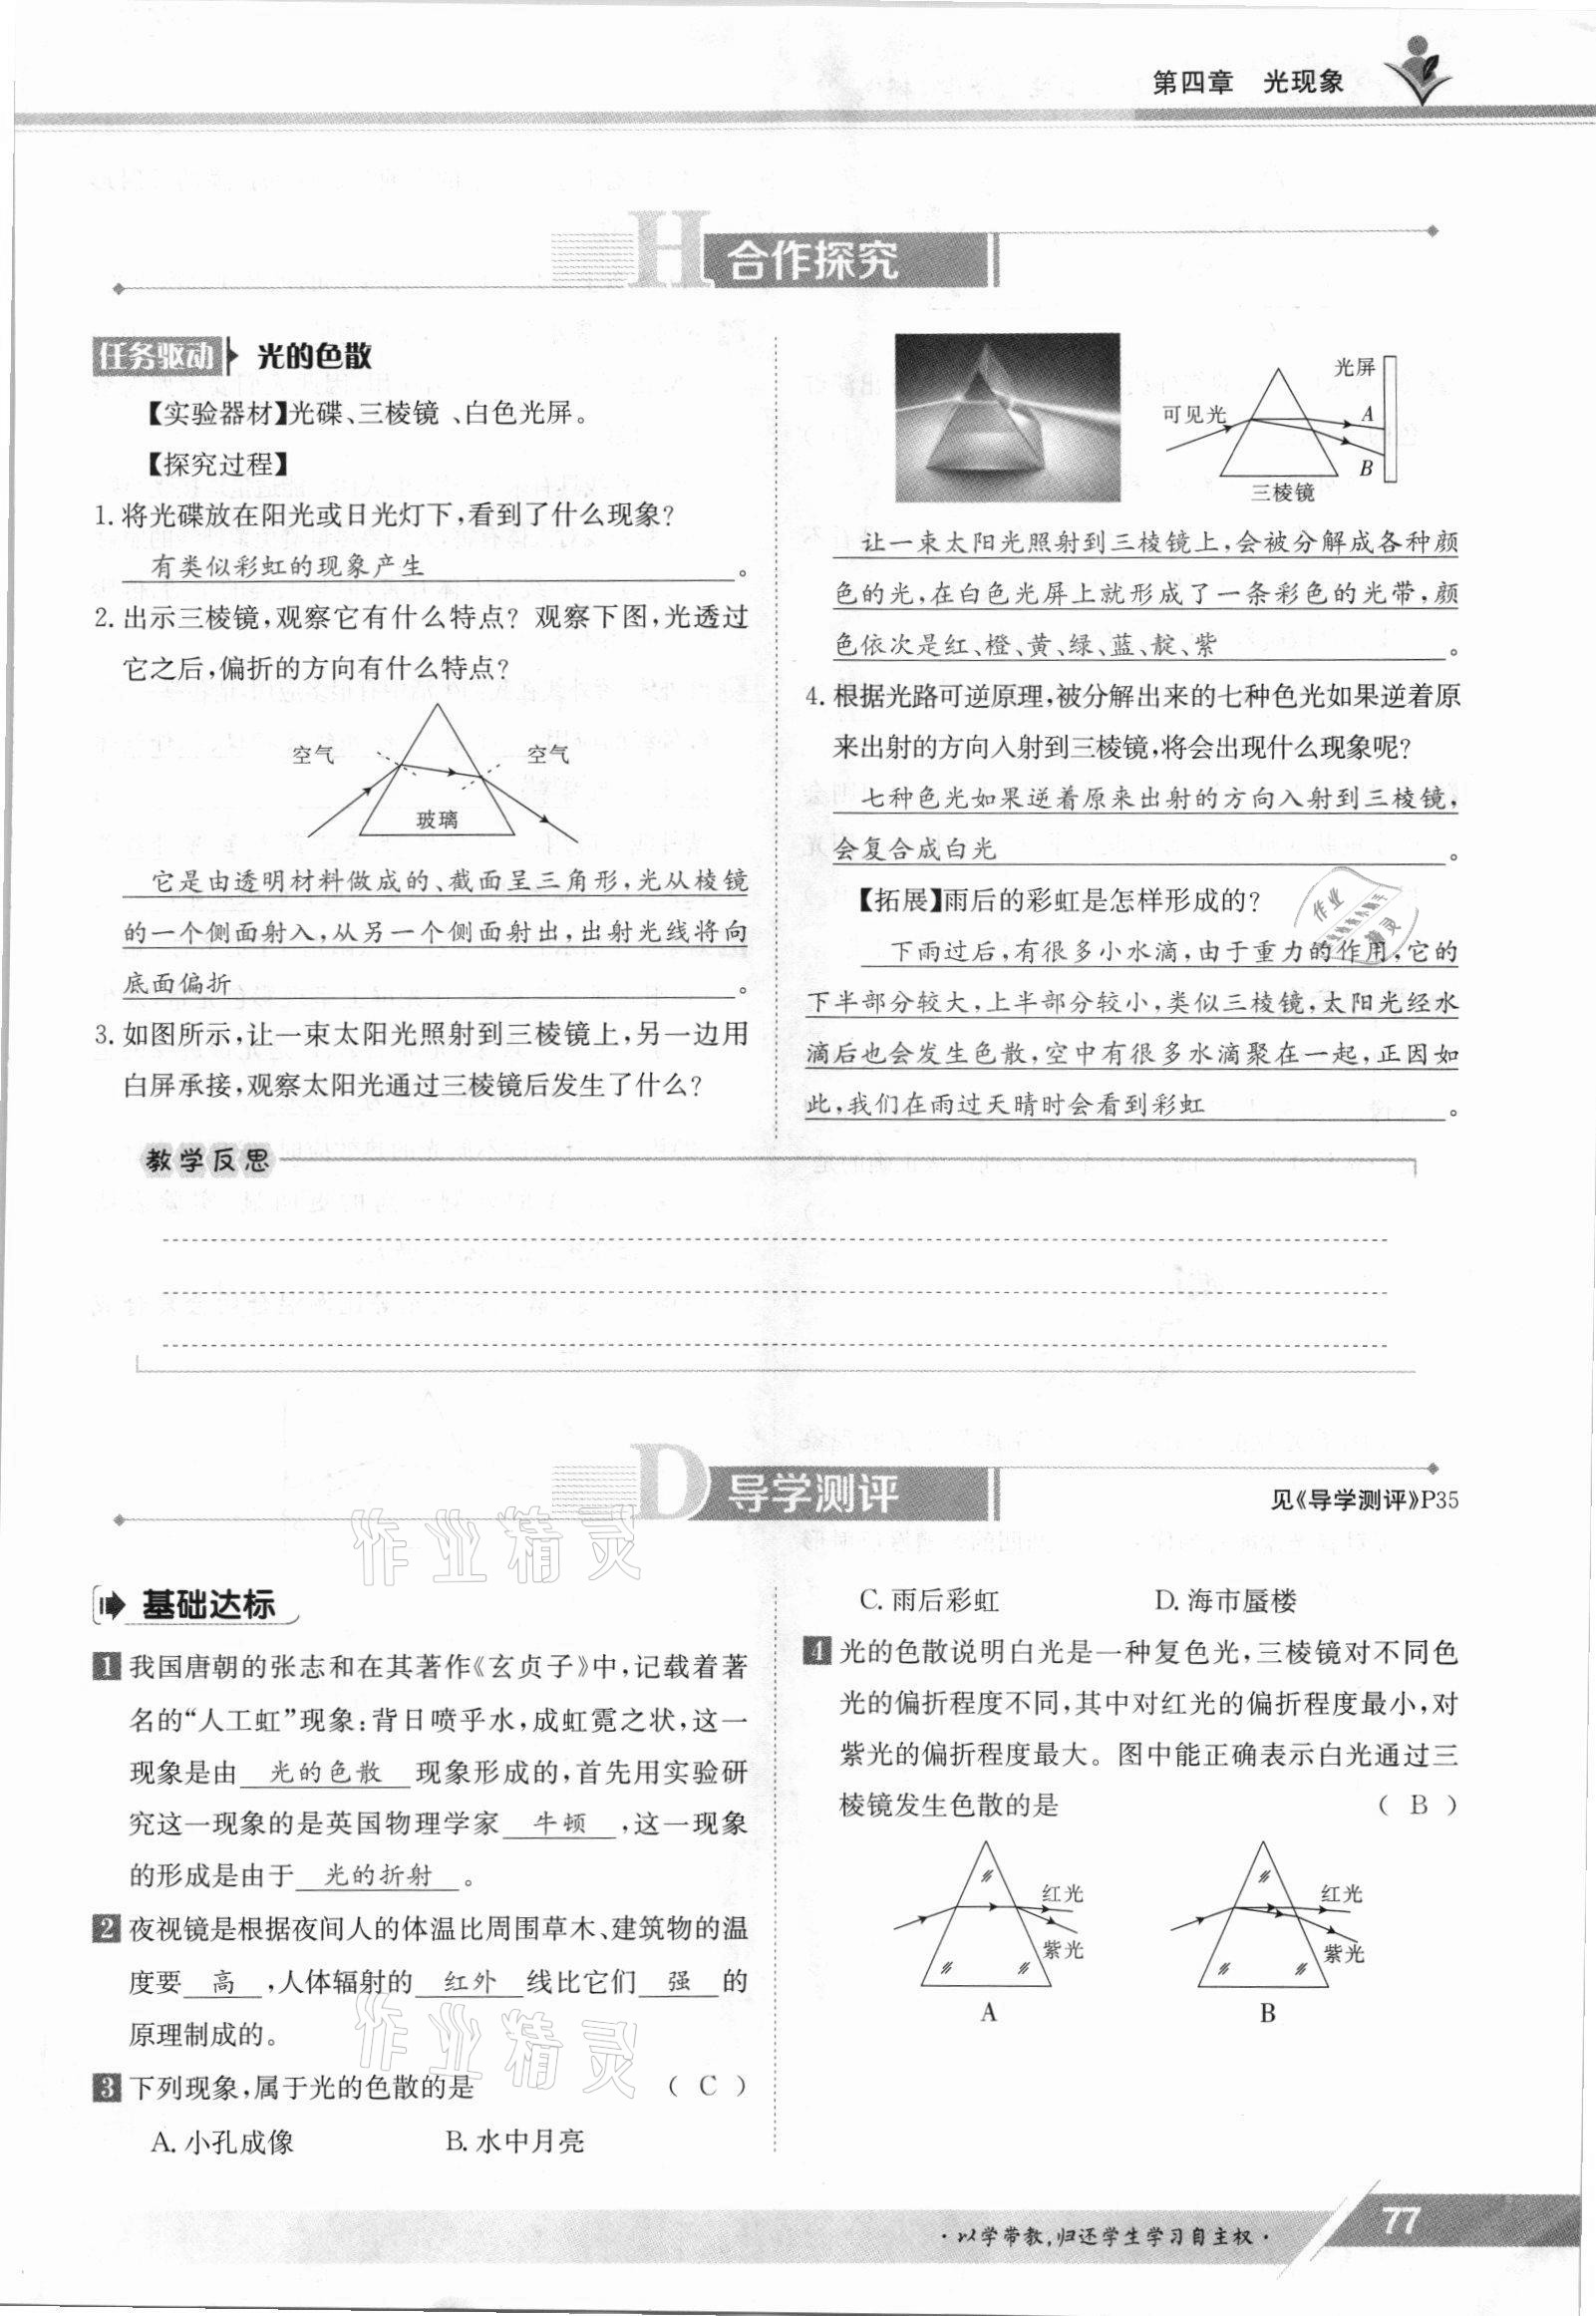 第四章 光现象
H 合作探究
任务驱动 光的色散
【实验器材】光碟、三棱镜 、白色光屏。
【探究过程】
1. 将光碟放在阳光或日光灯下,看到了什么现象?
有类似彩虹的现象产生。
2. 出示三棱镜,观察它有什么特点? 观察下图,光透过
它之后,偏折的方向有什么特点?
空气 空气
玻璃
它是由透明材料做成的、截面呈三角形,光从棱镜
的一个侧面射入,从另一个侧面射出,出射光线将向
底面偏折。
3. 如图所示,让一束太阳光照射到三棱镜上,另一边用
白屏承接,观察太阳光通过三棱镜后发生了什么?
光屏
可见光 A
B
三棱镜
让一束太阳光照射到三棱镜上,会被分解成各种颜
色的光,在白色光屏上就形成了一条彩色的光带,颜
色依次是红、橙、黄、绿、蓝、靛、紫。
4. 根据光路可逆原理,被分解出来的七种色光如果逆着原
来出射的方向入射到三棱镜,将会出现什么现象呢?
七种色光如果逆着原来出射的方向入射到三棱镜,
会复合成白光。
【拓展】雨后的彩虹是怎样形成的?
下雨过后,有很多小水滴,由于重力的作用,它的
下半部分较大,上半部分较小,类似三棱镜,太阳光经水
滴后也会发生色散,空中有很多水滴聚在一起,正因如
此,我们在雨过天晴时会看到彩虹。
作业
精灵
教学反思
D 导学测评
见《导学测评》P35
作业精灵
基础达标
1 我国唐朝的张志和在其著作《玄贞子》中,记载着著
名的“人工虹”现象:背日喷乎水,成虹霓之状,这一
现象是由 光的色散 现象形成的,首先用实验研
究这一现象的是英国物理学家 牛顿 ,这一现象
的形成是由于 光的折射 。
2 夜视镜是根据夜间人的体温比周围草木、建筑物的温
度要 高 ,人体辐射的 红外 线比它们 强 的
原理制成的。
作业精灵
3 下列现象,属于光的色散的是 ( C )
A. 小孔成像 B. 水中月亮
C. 雨后彩虹 D. 海市蜃楼
4 光的色散说明白光是一种复色光,三棱镜对不同色
光的偏折程度不同,其中对红光的偏折程度最小,对
紫光的偏折程度最大。图中能正确表示白光通过三
棱镜发生色散的是 ( B )
红光 红光
紫光 紫光
A B
·以学带教,归还学生学习自主权·
77